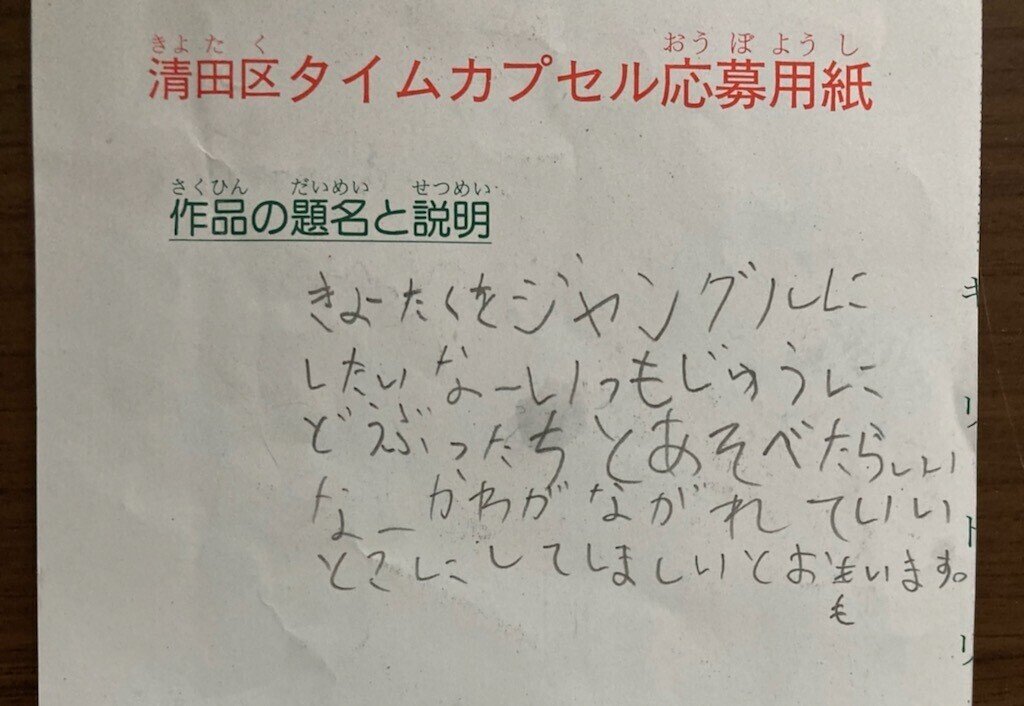 きよたく おうぼようし
清田区タイムカプセル応募用紙
さくひん だいめい せつめい
作品の題名と説明
きよーたくをジャングルに
したいなーいつもじゅうに
どうぶつたちとあそべたらいい
なーかわがながれていい
とこにしてしましいとおもいます。
も
キリトリ